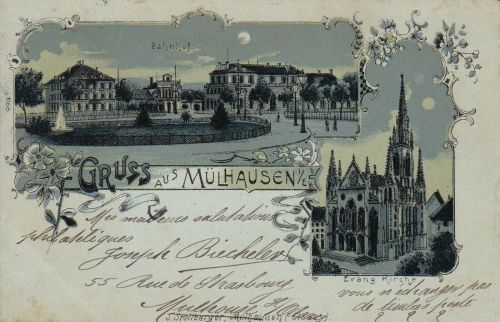 Bahnhof
GRUSS AUS MÜLHAUSEN I/E
Evang. Kirche
Mes meilleures salutations
philatéliques
Joseph Biecheler
55 Rue de Strasbourg
Mulhouse
vous n'échangez pas
de timbres poste
J. Stollberger, Mülhausen (Elsass)